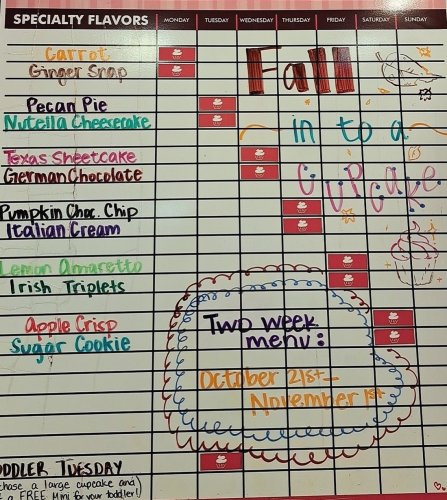 SPECIALTY FLAVORS MONDAY TUESDAY WEDNESDAY THURSDAY FRIDAY SATURDAY SUNDAY
Carrot
Ginger Snap
Fall
Pecan Pie
Nutella Cheesecake
in to a
Texas Sheetcake
German Chocolate
Cupcake
Pumpkin Choc. Chip
Italian Cream
Lemon Amaretto
Irish Triplets
Apple Crisp
Sugar Cookie
Two week
menu:
October 21st-
November 1st
ODDLER TUESDAY
chase a large cupcake and
a FREE Mini for your toddler!)